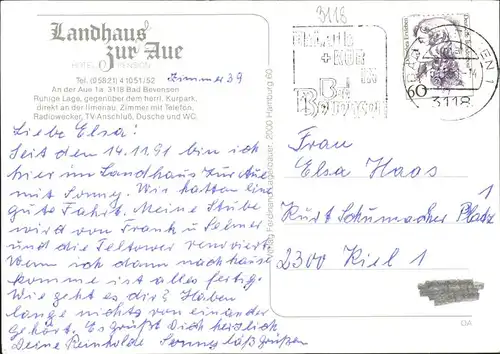 Landhaus
zur Aue
HOTEL PENSION
Tel. (05821) 41051/52
An der Aue 1a, 3118 Bad Bevensen
Ruhige Lage, gegenüber dem herrl. Kurpark,
direkt an der Ilmenau. Zimmer mit Telefon,
Radiowecker, TV-Anschluß, Dusche und WC.
Zimmer 39
3118
+ KUR
IN
Bad
Bevensen
60
3118
Liebe Elsa!
Seit den 14.11.91 bin ich
hier im Landhaus Zur Aue
mit Sonny. Wir hatten eine
gute Fahrt. Meine Stube
wird von Frank u Selmer
und die Teltower renoviert.
Wenn ich dann nachhause
komme ist alles fertig.
Wie geht es dir? Haben
lange nichts von einander
gehört. Es grüßt Dich herzlich
Deine Reinholde Sonny läßt grüßen
Frau
Elsa Haas
Kurt Schumacher Platz 1
2300 Kiel 1
Verlag Ferdinand Lagerbauer, 2000 Hamburg 60